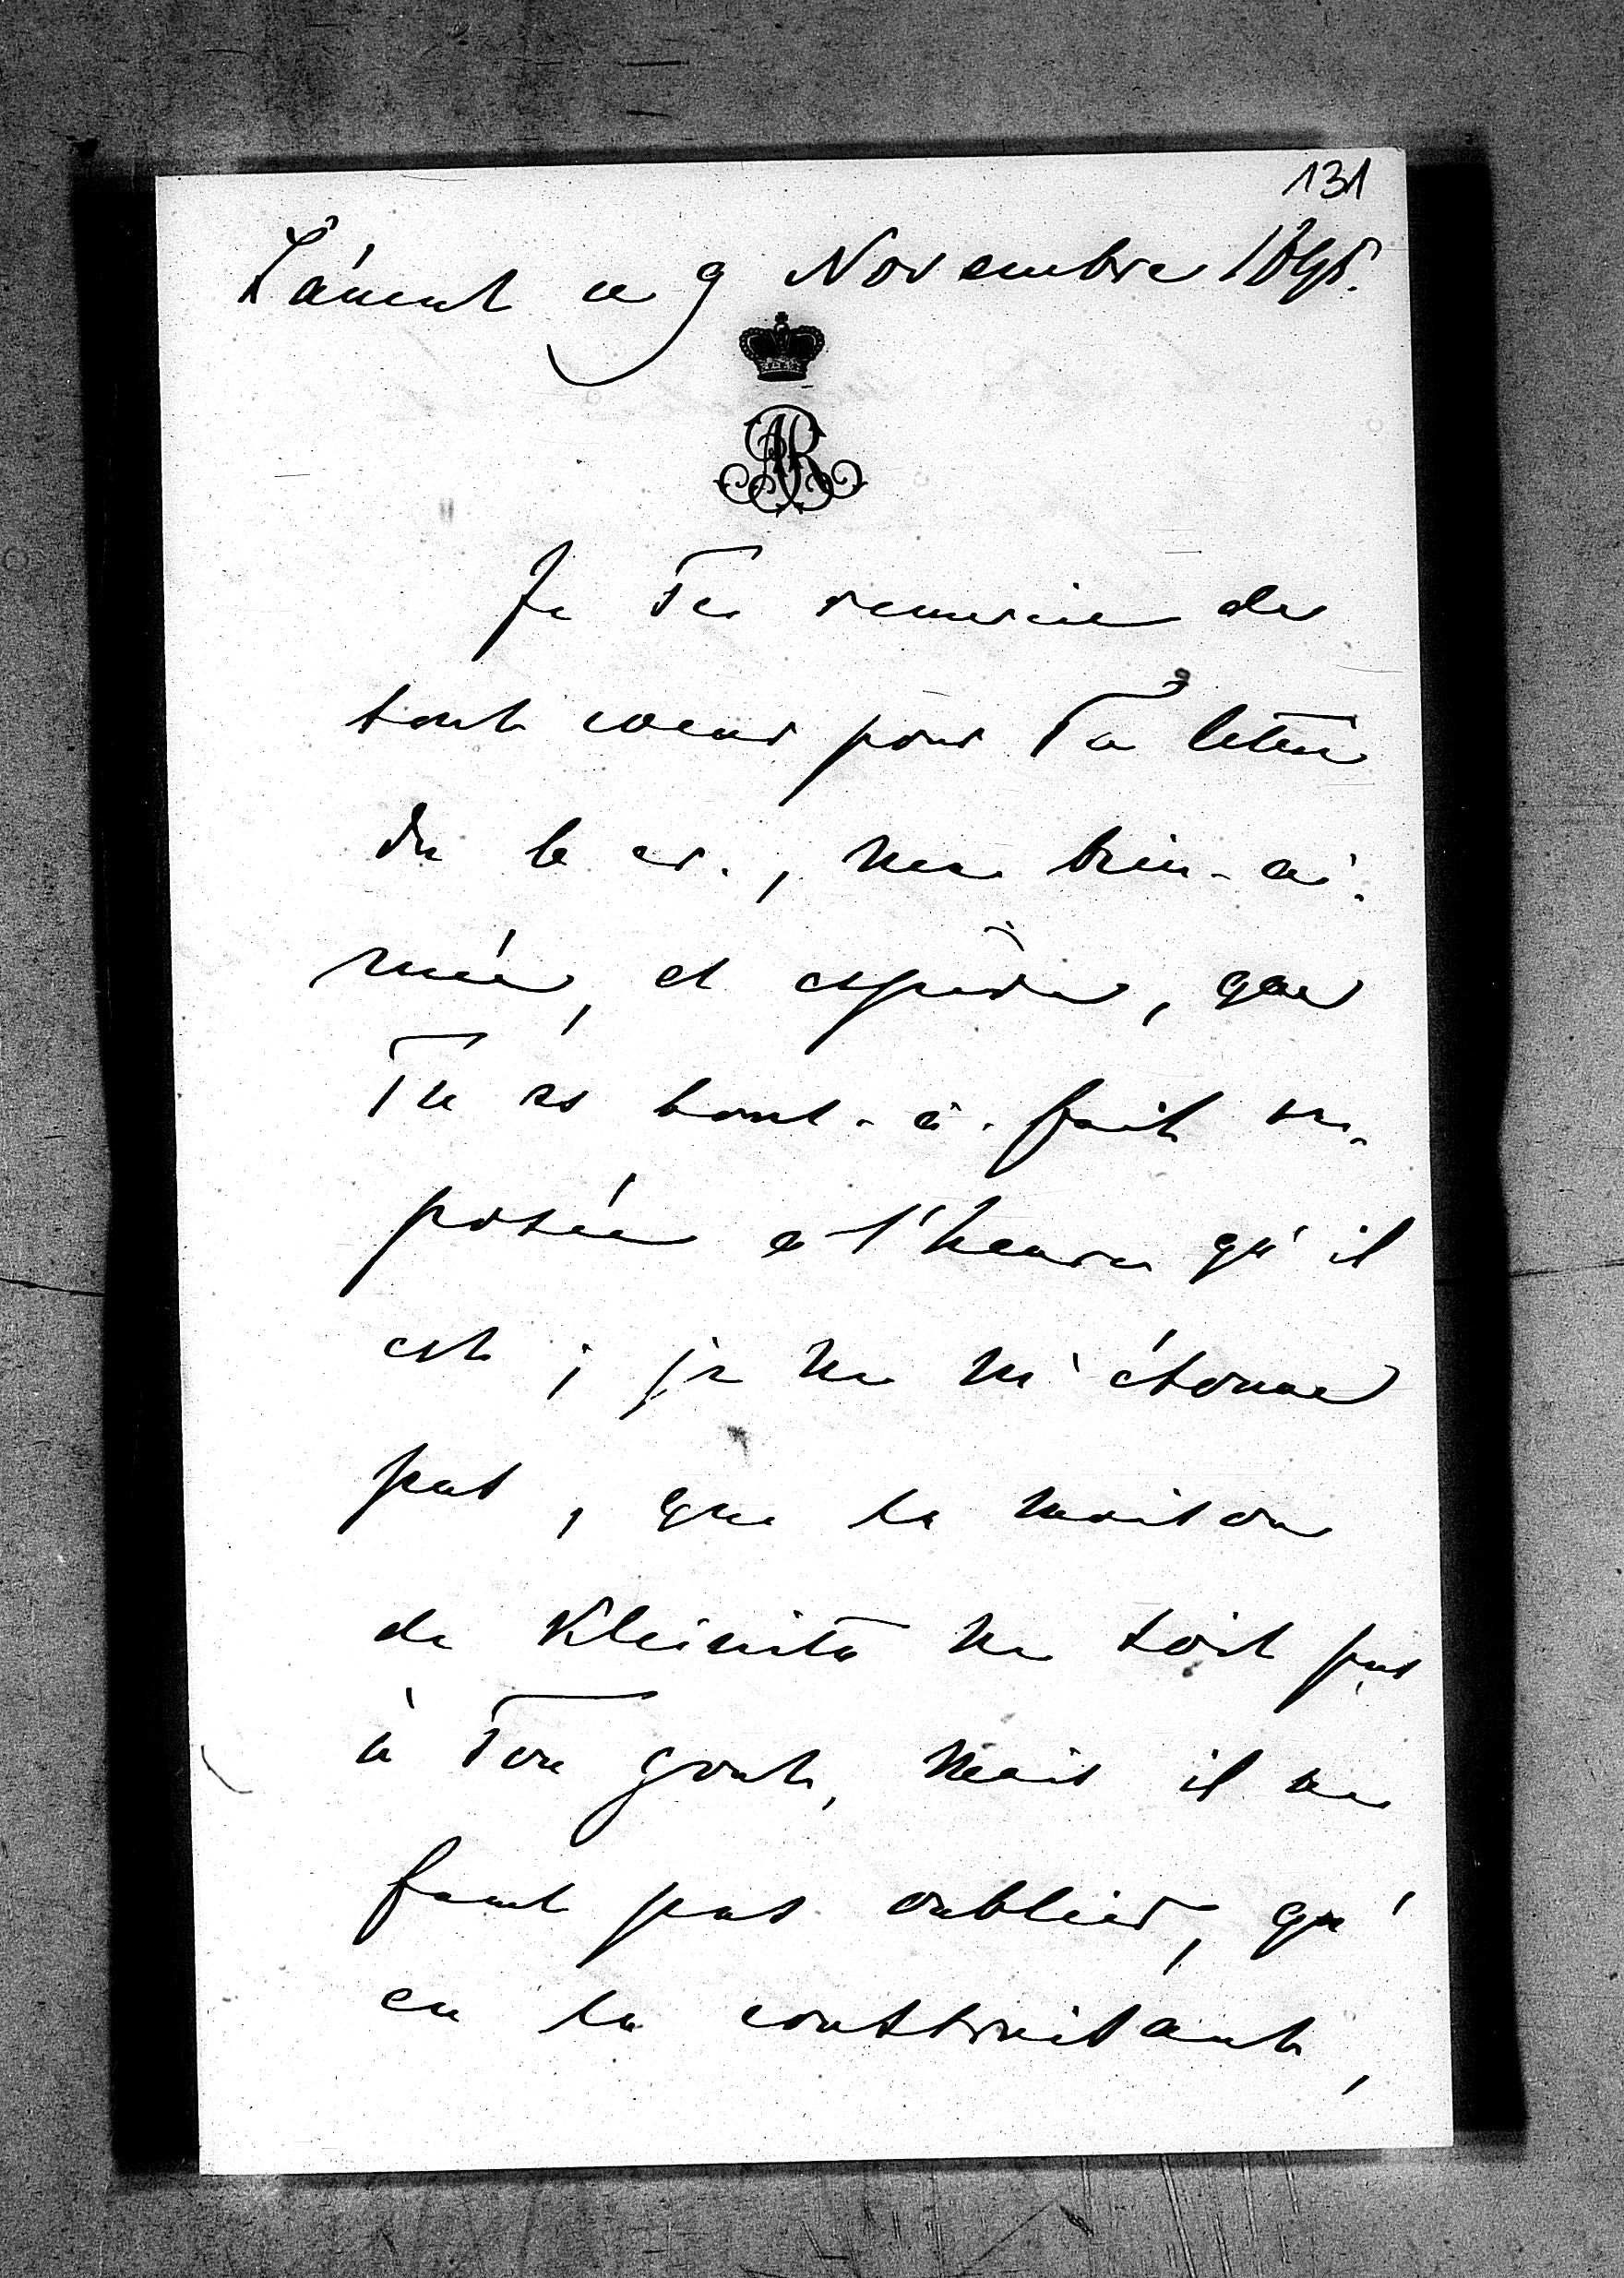 131
Łańcut ce 9 Novembre 1895.
AR
Je Te remercie de
tout coeur pour Ta lettre
du 6 cr., ma bien-ai-
mée, et espère, que
Tu es tout-à-fait re-
posée à l'heure qu'il
est; je ne m'étonne
pas, que la maison
de Kleinitz ne soit pas
à Ton gout, mais il ne
faut pas oublier, qu'
en la construisant,